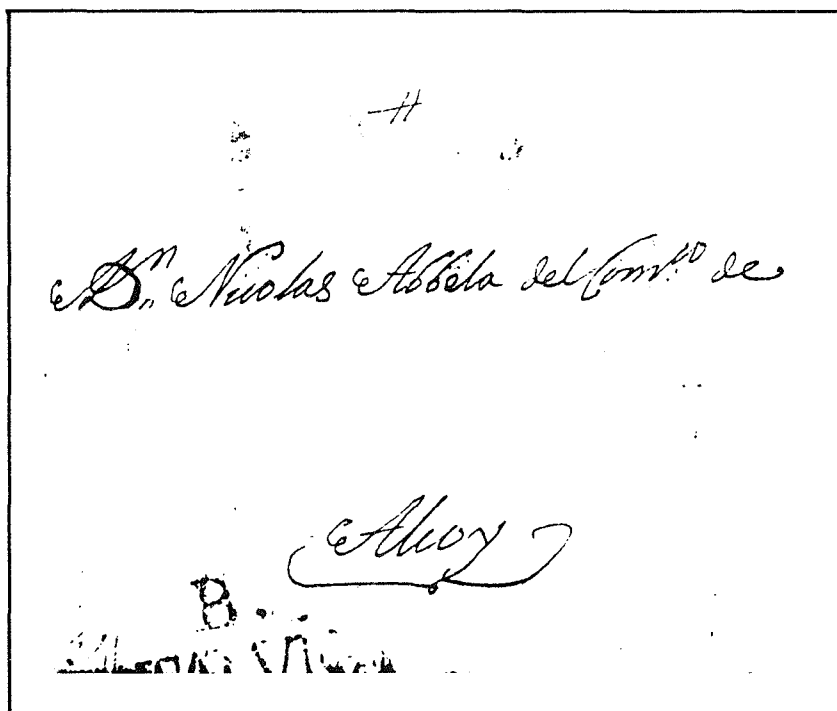 A D.ⁿ Nicolas Abbela del Com.ᶜⁱᵒ de
Alcoy
B.